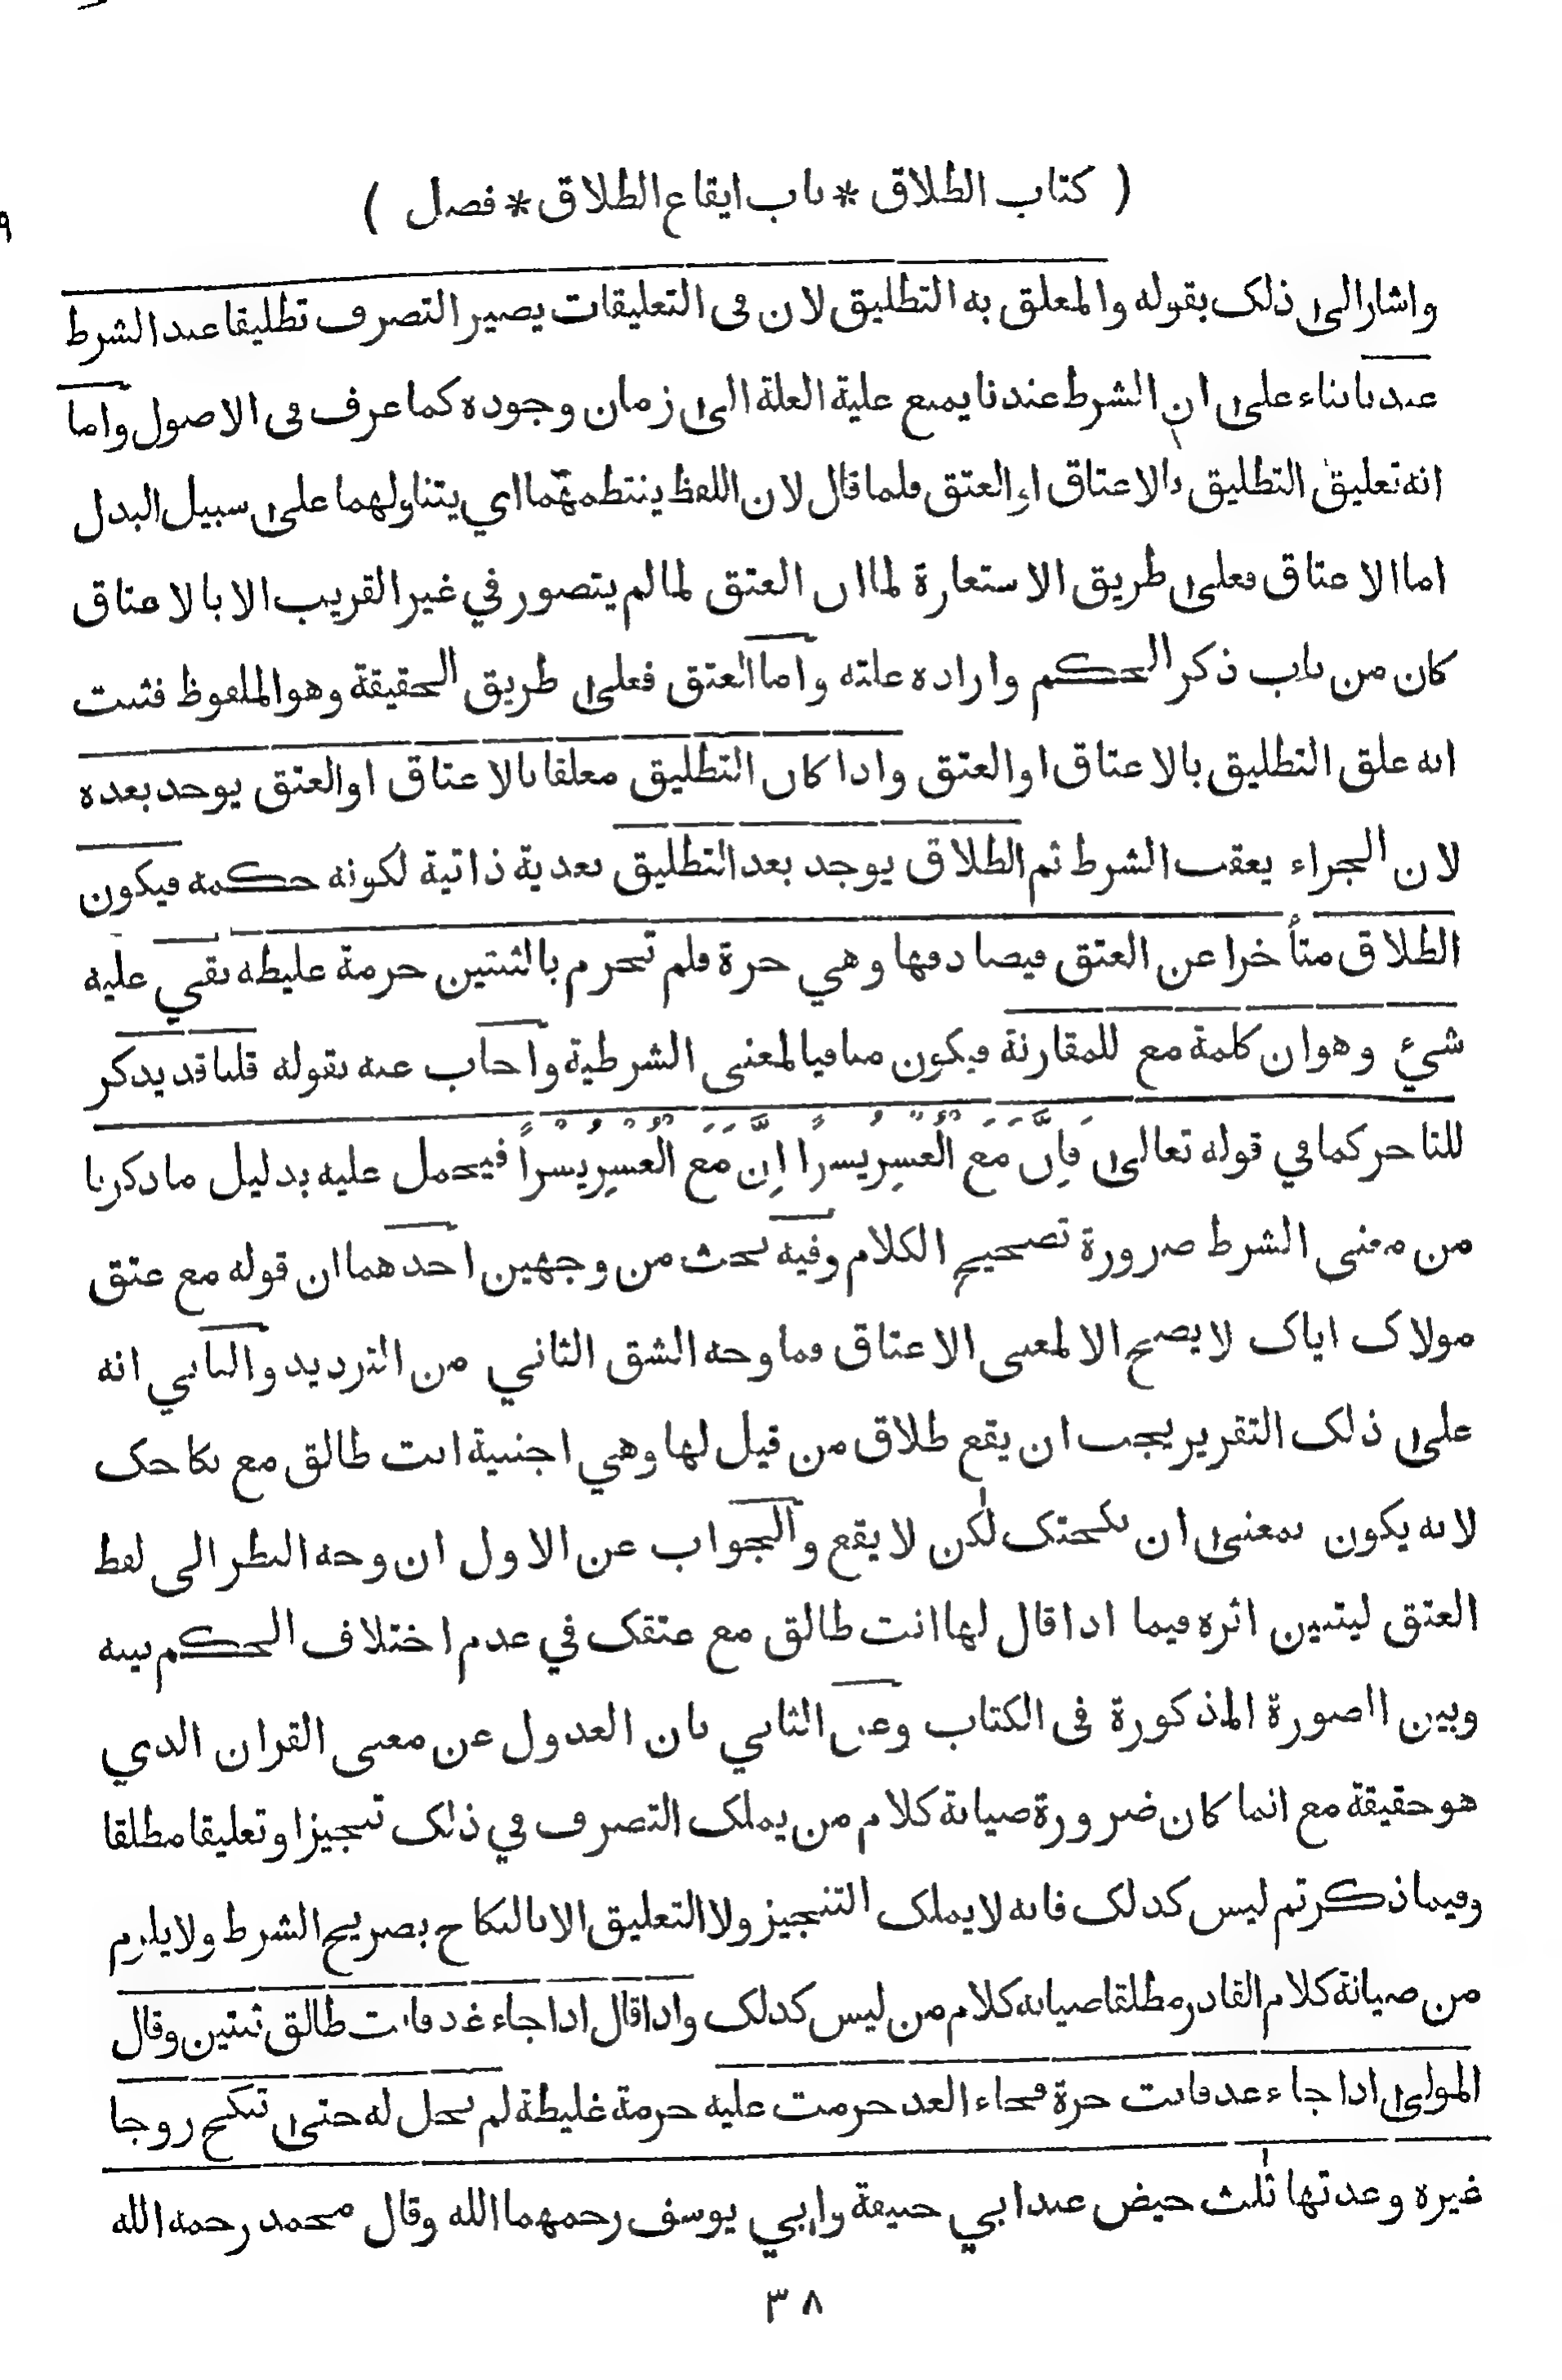 ( كتاب الطلاق * باب ايقاع الطلاق * فصل )
واشار الى ذلك بقوله والمعلق به التطليق لان في التعليقات يصير التصرف تطليقا عند الشرط
عندنا بناء على ان الشرط عندنا يمنع علية العلة الى زمان وجوده كما عرف في الاصول واما
انه تعليق التطليق بالاعتاق او العتق فلما قال لان اللفظ ينتظمهما اي يتناولهما على سبيل البدل
اما الاعتاق فعلى طريق الاستعارة لما ان العتق لما لم يتصور في غير القريب الا بالاعتاق
كان من باب ذكر الحكم واراده علته واما العتق فعلى طريق الحقيقة وهو الملفوظ فثبت
انه علق التطليق بالاعتاق او العتق واذا كان التطليق معلقا بالاعتاق او العتق يوجد بعده
لان الجزاء يعقب الشرط ثم الطلاق يوجد بعد التطليق بعدية ذاتية لكونه حكمه فيكون
الطلاق متأخرا عن العتق فيصادفها وهي حرة فلم تحرم بالثنتين حرمة غليظه بقي عليه
شيء وهو ان كلمة مع للمقارنة فيكون منافيا لمعنى الشرطية واجاب عنه بقوله قلنا قد يذكر
للتاخر كما في قوله تعالى فَاِنَّ مَعَ الْعُسْرِ يُسْراً اِنَّ مَعَ الْعُسْرِ يُسْراً فيحمل عليه بدليل ما ذكرنا
من معنى الشرط ضرورة تصحيح الكلام وفيه بحث من وجهين احدهما ان قوله مع عتق
مولاك اياك لا يصح الا لمعنى الاعتاق فما وجه الشق الثاني من الترديد والثاني انه
على ذلك التقرير يجب ان يقع طلاق من قيل لها وهي اجنبية انت طالق مع نكاحك
لانه يكون بمعنى ان نكحتك لكن لا يقع والجواب عن الاول ان وجه النظر الى لفظ
العتق ليتبين اثره فيما اذا قال لها انت طالق مع عتقك في عدم اختلاف الحكم بينه
وبين الصورة المذكورة في الكتاب وعن الثاني بان العدول عن معنى القران الذي
هو حقيقة مع انما كان ضرورة صيانة كلام من يملك التصرف في ذلك تنجيزا و تعليقا مطلقا
وفيما ذكرتم ليس كذلك فانه لا يملك التنجيز ولا التعليق الا بالنكاح بصريح الشرط ولا يلزم
من صيانة كلام القادر مطلقا صيانه كلام من ليس كذلك واذا قال اذا جاء غد فانت طالق ثنتين وقال
المولى اذا جاء غد فانت حرة فجاء الغد حرمت عليه حرمة غليظة لم تحل له حتى تنكح زوجا
غيره وعدتها ثلث حيض عند ابي حنيفة وابي يوسف رحمهما الله وقال محمد رحمه الله
٣٨